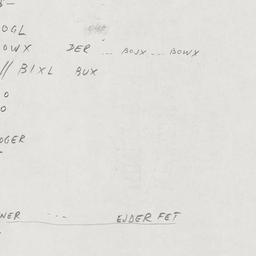 OGL
OWX DER ... BOJX ... BOWX
// BIXL BUX
O
O
OGER
NER ... EJDER FET